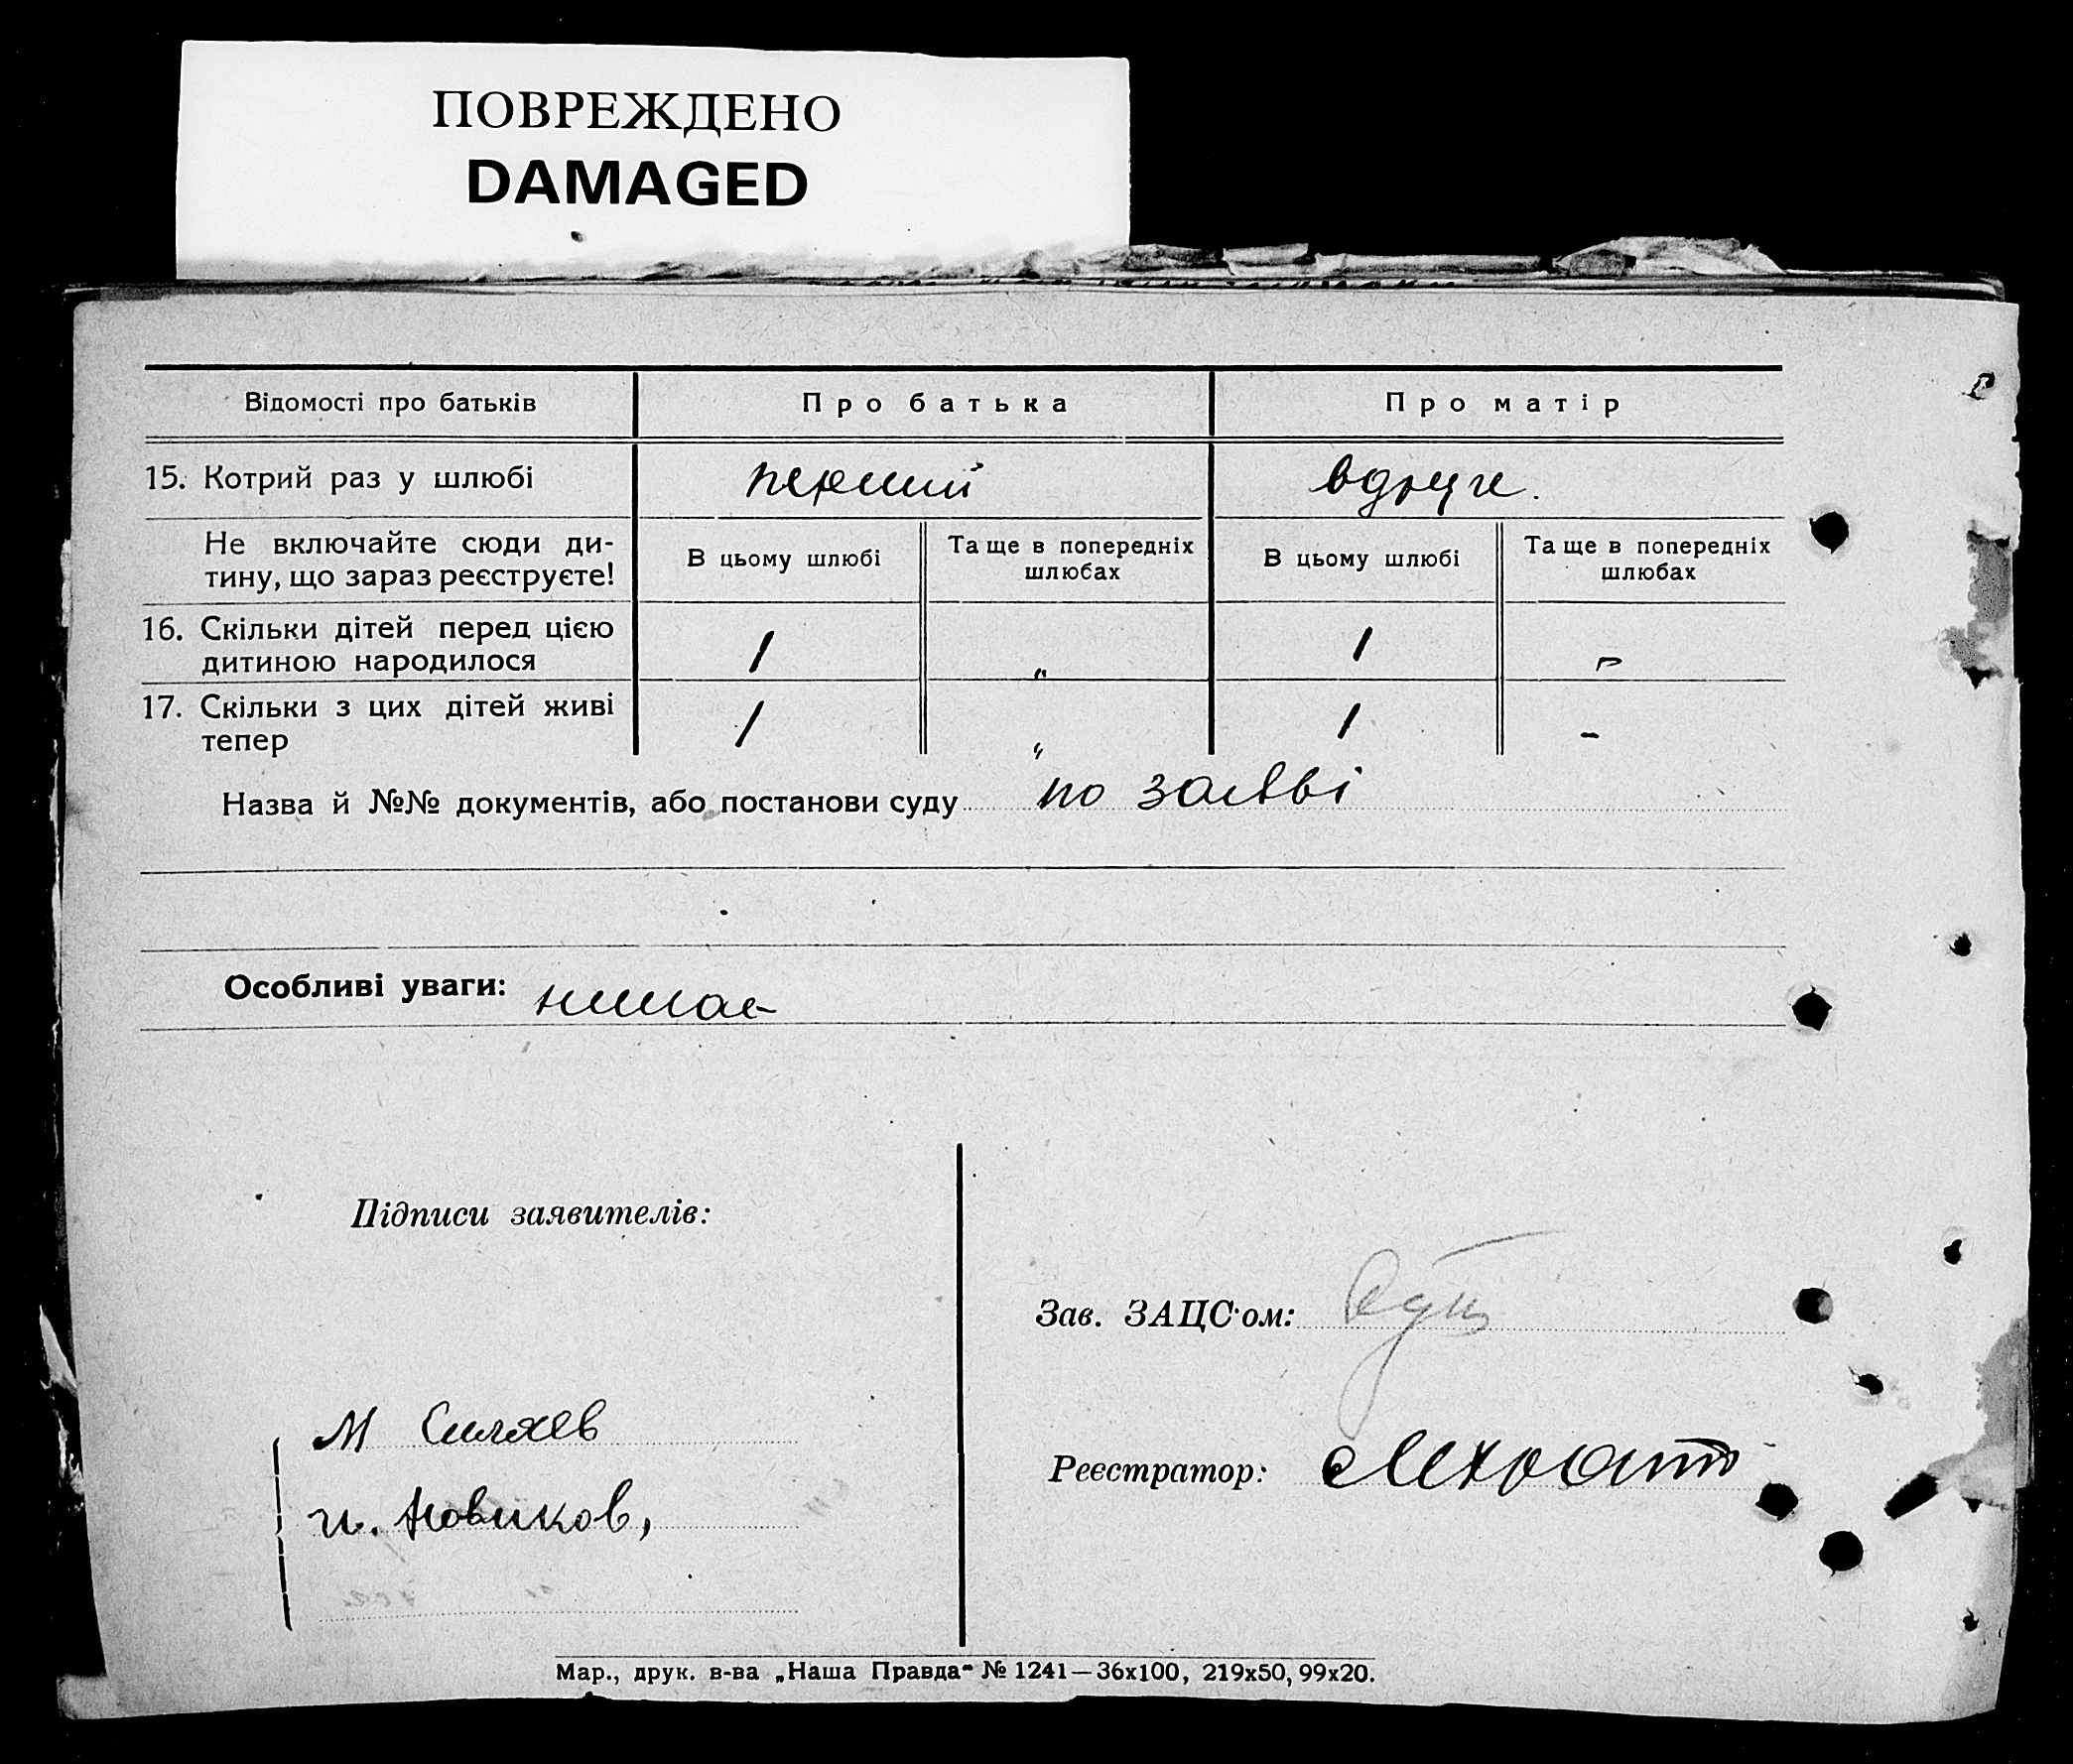 ПОВРЕЖДЕНО
DAMAGED
Відомості про батьків
Про батька
Про матір
15. Котрий раз у шлюбі
перший
вдруге.
Не включайте сюди ди-
тину, що зараз реєструєте!
В цьому шлюбі
Та ще в попередніх
шлюбах
В цьому шлюбі
Та ще в попередніх
шлюбах
16. Скільки дітей перед цією
дитиною народилося
1
"
1
-
17. Скільки з цих дітей живі
тепер
1
"
1
-
Назва й №№ документів, або постанови суду по заяві
Особливі уваги: немає
Підписи заявителів:
Зав. ЗАЦС'ом:
М Силяев
Реєстратор:
и. Новиков,
Мар., друк. в-ва „Наша Правда" № 1241—36х100, 219х50, 99х20.